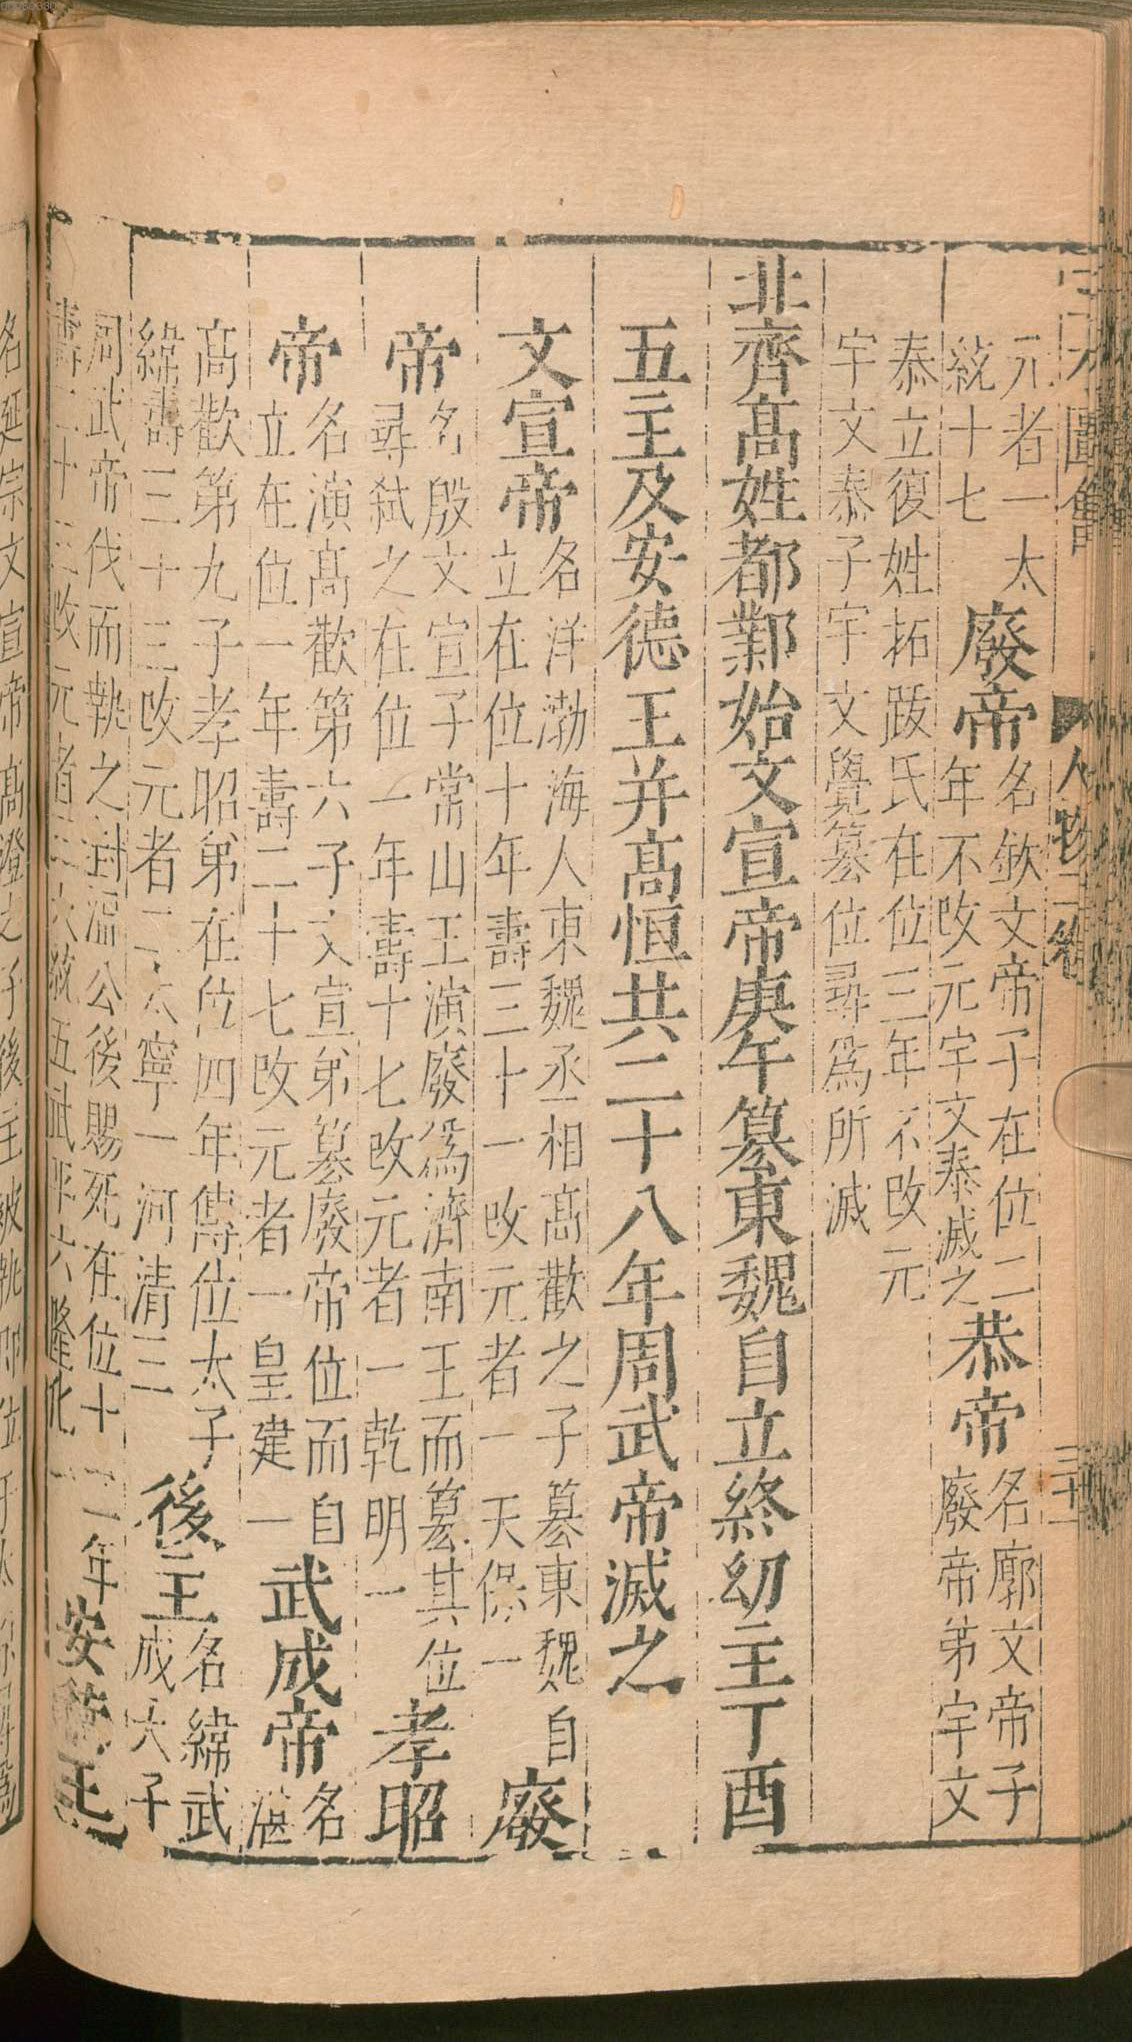 元者一太
統十七
廢帝
名欽文帝子在位二
年不改元宇文泰滅之
恭帝
名廓文帝子
廢帝弟宇文
泰立復姓拓跋氏在位三年不改元
宇文泰子宇文覺簒位尋為所滅
北齊髙姓都鄴始文宣帝庚午簒東魏自立終幼主丁酉
五主及安德王并髙恒共二十八年周武帝滅之
文宣帝
名洋渤海人東魏丞相髙歡之子簒東魏自
立在位十年壽三十一改元者一天保一
廢
帝
名殷文宣子常山王演廢爲濟南王而簒其位
尋弑之在位一年壽十七改元者一乾明一
孝昭
帝
名演髙歡第六子文宣弟簒廢帝位而自
立在位一年壽二十七改元者一皇建一
武成帝
名
湛
髙歡第九子孝昭弟在位四年傳位太子
緯壽三十三改元者二太寧一河清三
後主
名緯武
成太子
周武帝伐而執之封溫公後賜死在位十二年
壽二十二改元者三天統五武平六隆化一
安德王
名延宗文宣帝髙澄之子後主被執即位于
人物二卷